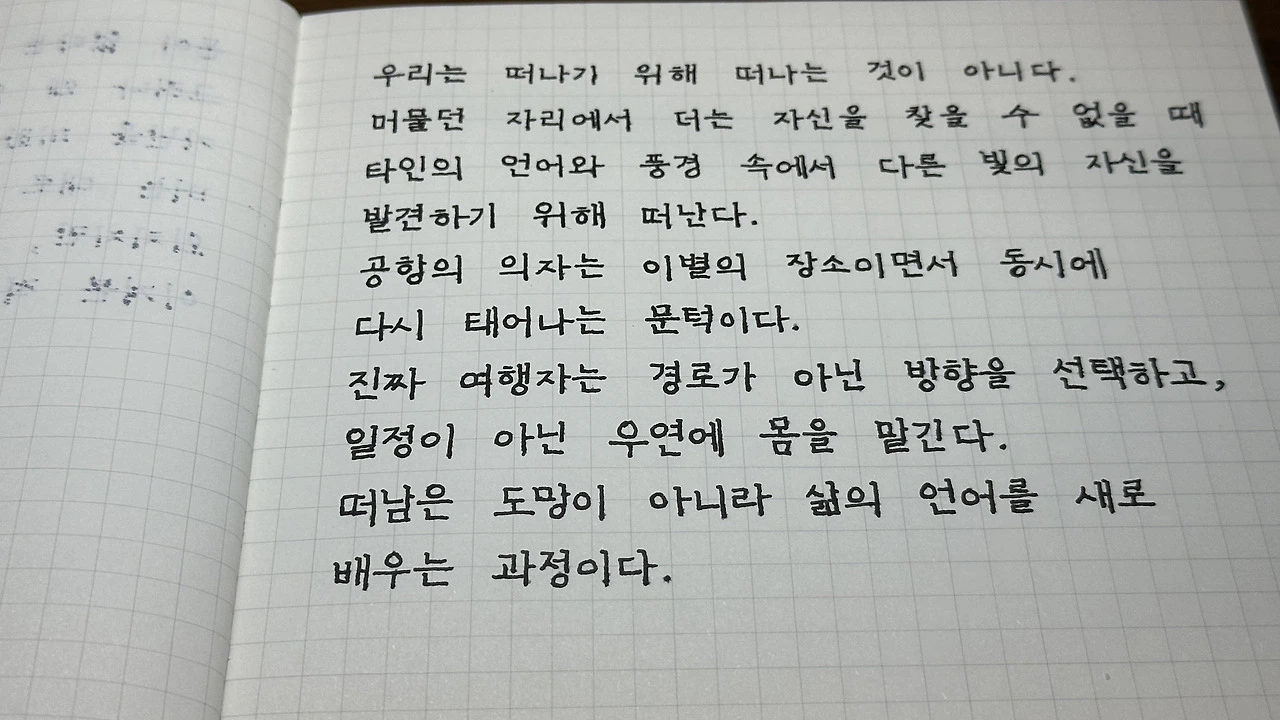 우리는 떠나기 위해 떠나는 것이 아니다.
머물던 자리에서 더는 자신을 찾을 수 없을 때
타인의 언어와 풍경 속에서 다른 빛의 자신을
발견하기 위해 떠난다.
공항의 의자는 이별의 장소이면서 동시에
다시 태어나는 문턱이다.
진짜 여행자는 경로가 아닌 방향을 선택하고,
일정이 아닌 우연에 몸을 맡긴다.
떠남은 도망이 아니라 삶의 언어를 새로
배우는 과정이다.